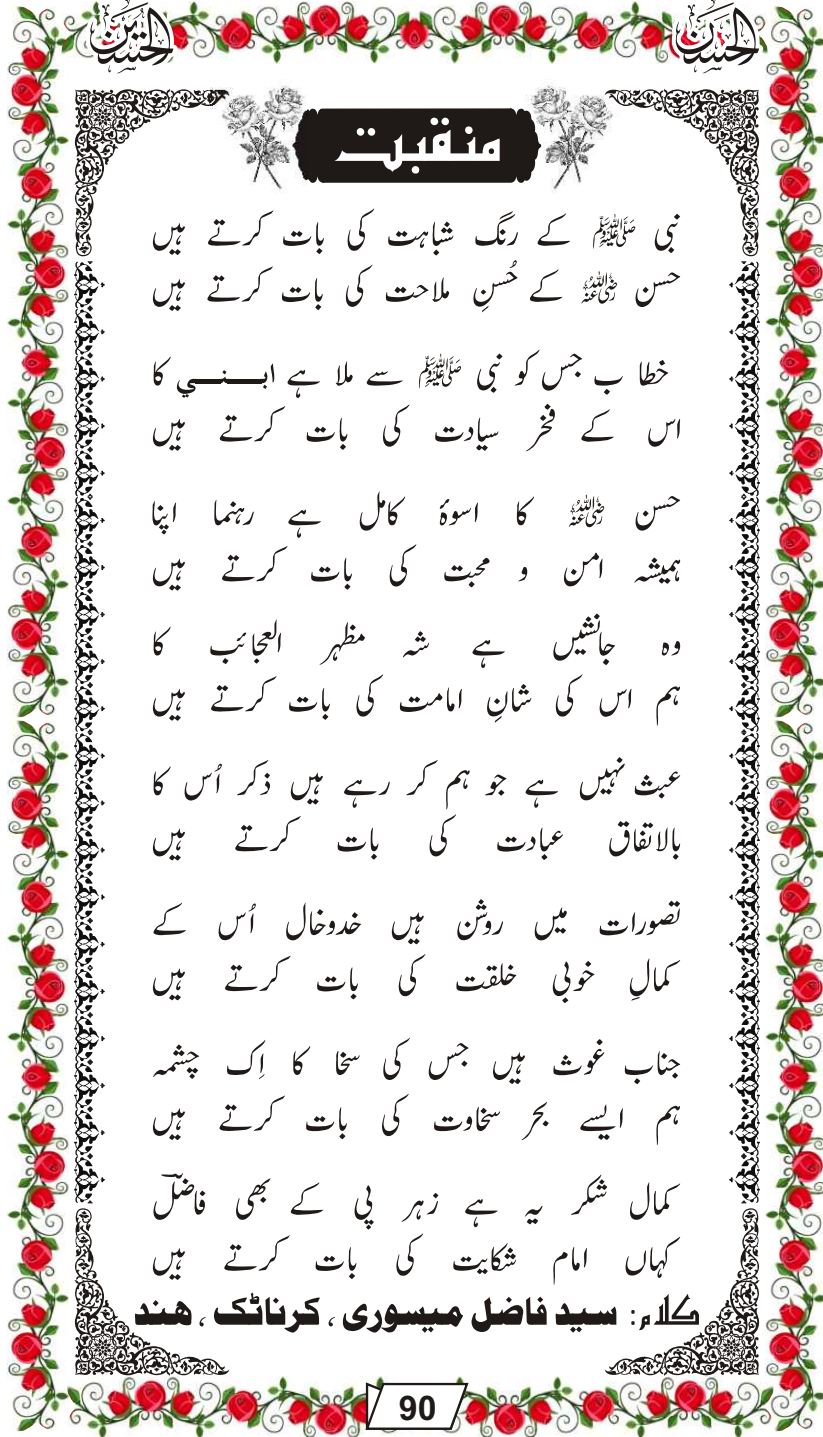 الحسن الحسن
منقبت
نبی ﷺ کے رنگ شباہت کی بات کرتے ہیں
حسن رضی اللہ عنہ کے حُسنِ ملاحت کی بات کرتے ہیں
خطا ب جس کو نبی ﷺ سے ملا ہے ابـــنـــي کا
اس کے فخر سیادت کی بات کرتے ہیں
حسن رضی اللہ عنہ کا اسوۂ کامل ہے رہنما اپنا
ہمیشہ امن و محبت کی بات کرتے ہیں
وہ جانشیں ہے شہ مظہر العجائب کا
ہم اس کی شانِ امامت کی بات کرتے ہیں
عبث نہیں ہے جو ہم کر رہے ہیں ذکر اُس کا
بالاتفاق عبادت کی بات کرتے ہیں
تصورات میں روشن ہیں خدوخال اُس کے
کمالِ خوبی خلقت کی بات کرتے ہیں
جناب غوث ہیں جس کی سخا کا اِک چشمہ
ہم ایسے بحر سخاوت کی بات کرتے ہیں
کمال شکر یہ ہے زہر پی کے بھی فاضلؔ
کہاں امام شکایت کی بات کرتے ہیں
کلام: سید فاضل میسوری، کرناٹک، ھند
90